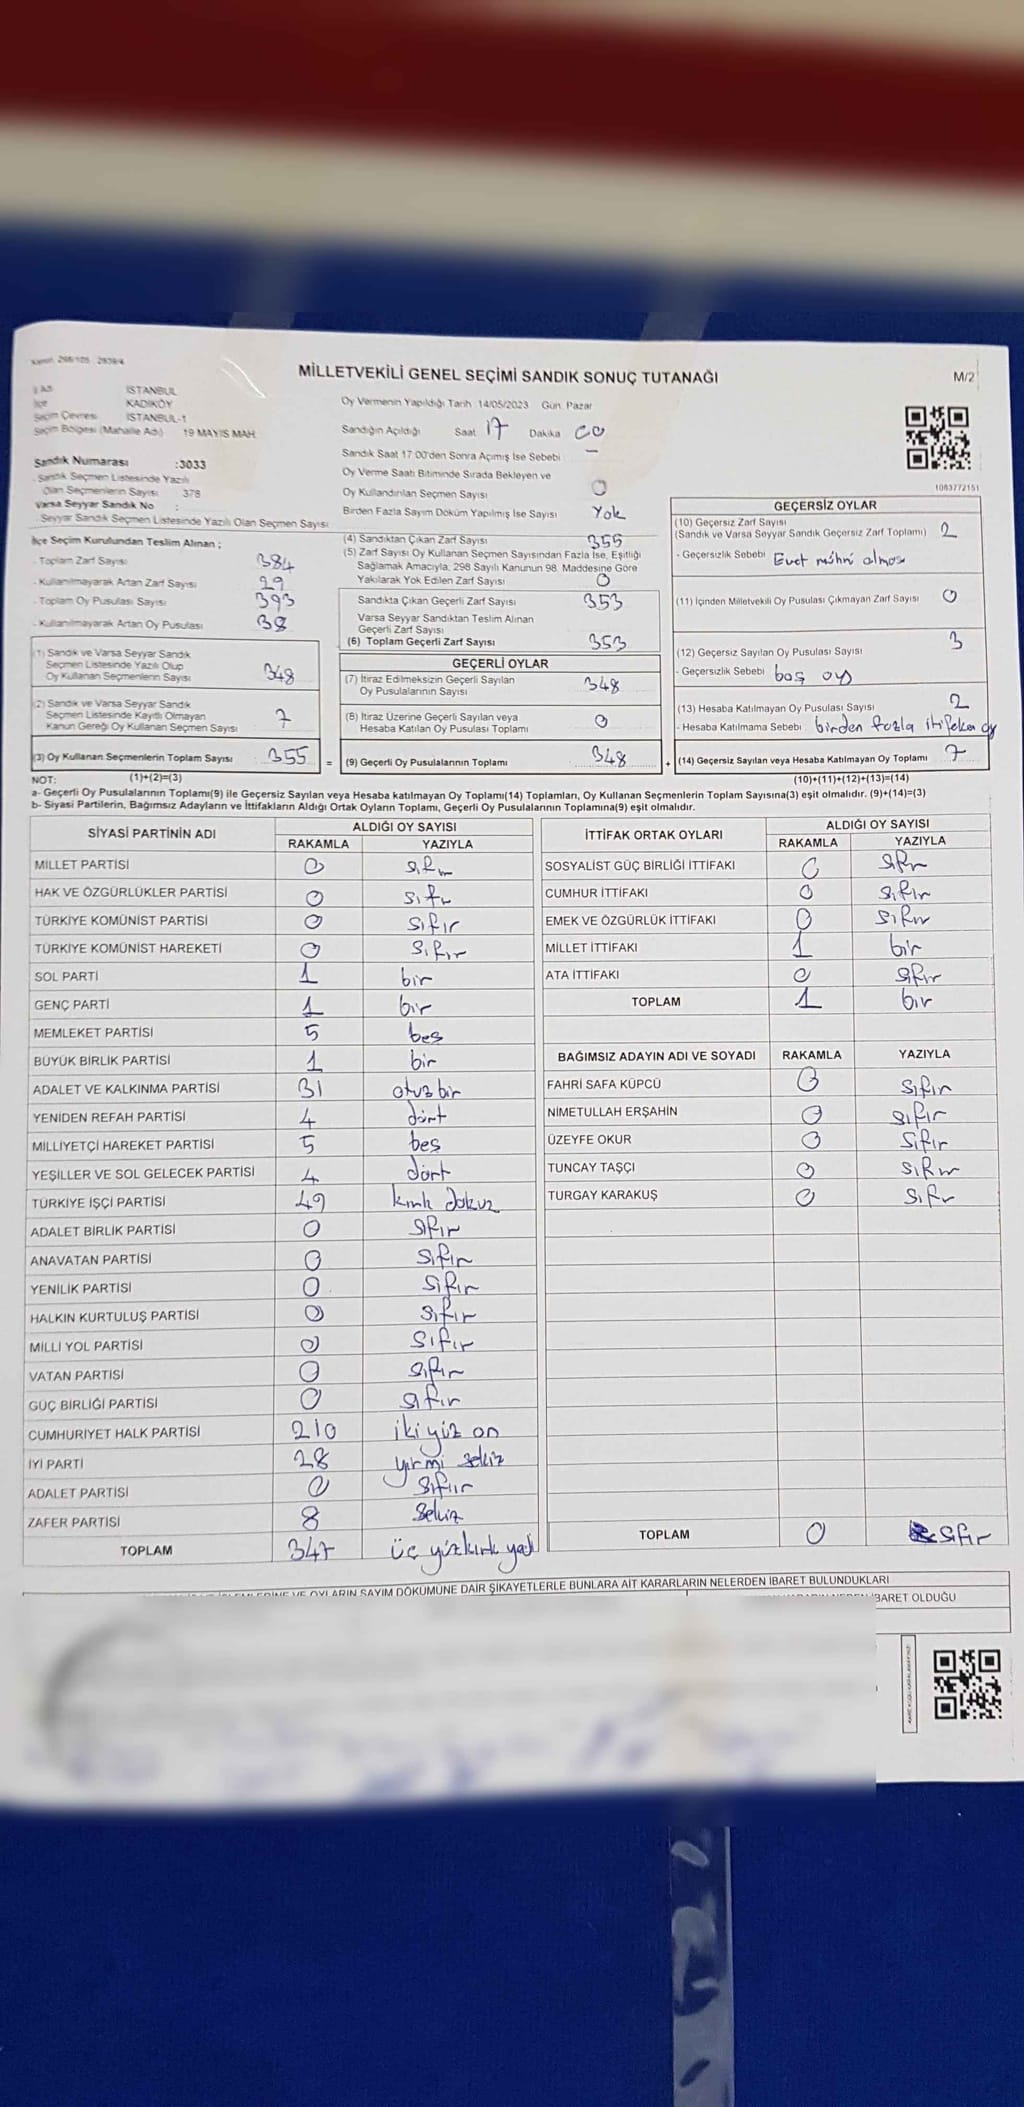 MİLLETVEKİLİ GENEL SEÇİMİ SANDIK SONUÇ TUTANAĞI
M/2
İSTANBUL
KADIKÖY
Seçim Çevresi İSTANBUL-1
Seçim Bölgesi (Mahalle Adı) 19 MAYIS MAH.
Sandık Numarası :3033
Sandık Seçmen Listesinde Yazılı
Olan Seçmenlerin Sayısı 378
Varsa Seyyar Sandık No :
Seyyar Sandık Seçmen Listesinde Yazılı Olan Seçmen Sayısı
Oy Vermenin Yapıldığı Tarih 14/05/2023 Gün: Pazar
Sandığın Açıldığı Saat 17 Dakika 00
Sandık Saat 17:00'den Sonra Açılmış İse Sebebi —
Oy Verme Saati Bitiminde Sırada Bekleyen ve
Oy Kullandırılan Seçmen Sayısı 0
Birden Fazla Sayım Döküm Yapılmış İse Sayısı Yok
1083772151
İlçe Seçim Kurulundan Teslim Alınan ;
- Toplam Zarf Sayısı 384
- Kullanılmayarak Artan Zarf Sayısı 29
- Toplam Oy Pusulası Sayısı 393
- Kullanılmayarak Artan Oy Pusulası 38
(1) Sandık ve Varsa Seyyar Sandık
Seçmen Listesinde Yazılı Olup
Oy Kullanan Seçmenlerin Sayısı 348
(2) Sandık ve Varsa Seyyar Sandık
Seçmen Listesinde Kayıtlı Olmayan
Kanun Gereği Oy Kullanan Seçmen Sayısı 7
(3) Oy Kullanan Seçmenlerin Toplam Sayısı 355 =
(4) Sandıktan Çıkan Zarf Sayısı 355
(5) Zarf Sayısı Oy Kullanan Seçmen Sayısından Fazla İse, Eşitliği
Sağlamak Amacıyla, 298 Sayılı Kanunun 98. Maddesine Göre
Yakılarak Yok Edilen Zarf Sayısı 0
Sandıkta Çıkan Geçerli Zarf Sayısı 353
Varsa Seyyar Sandıktan Teslim Alınan
Geçerli Zarf Sayısı
(6) Toplam Geçerli Zarf Sayısı 353
GEÇERLİ OYLAR
(7) İtiraz Edilmeksizin Geçerli Sayılan
Oy Pusulalarının Sayısı 348
(8) İtiraz Üzerine Geçerli Sayılan veya
Hesaba Katılan Oy Pusulası Toplamı 0
(9) Geçerli Oy Pusulalarının Toplamı 348 +
GEÇERSİZ OYLAR
(10) Geçersiz Zarf Sayısı
(Sandık ve Varsa Seyyar Sandık Geçersiz Zarf Toplamı) 2
- Geçersizlik Sebebi Evet
(11) İçinden Milletvekili Oy Pusulası Çıkmayan Zarf Sayısı 0
(12) Geçersiz Sayılan Oy Pusulası Sayısı 3
- Geçersizlik Sebebi boş oy
(13) Hesaba Katılmayan Oy Pusulası Sayısı 2
- Hesaba Katılmama Sebebi birden fazla oy
(14) Geçersiz Sayılan veya Hesaba Katılmayan Oy Toplamı 7
NOT: (1)+(2)=(3) (10)+(11)+(12)+(13)=(14)
a- Geçerli Oy Pusulalarının Toplamı(9) ile Geçersiz Sayılan veya Hesaba katılmayan Oy Toplamı(14) Toplamları, Oy Kullanan Seçmenlerin Toplam Sayısına(3) eşit olmalıdır. (9)+(14)=(3)
b- Siyasi Partilerin, Bağımsız Adayların ve İttifakların Aldığı Ortak Oyların Toplamı, Geçerli Oy Pusulalarının Toplamına(9) eşit olmalıdır.
SİYASİ PARTİNİN ADI ALDIĞI OY SAYISI
RAKAMLA YAZIYLA
MİLLET PARTİSİ 0 sıfır
HAK VE ÖZGÜRLÜKLER PARTİSİ 0 sıfır
TÜRKİYE KOMÜNİST PARTİSİ 0 sıfır
TÜRKİYE KOMÜNİST HAREKETİ 0 sıfır
SOL PARTİ 1 bir
GENÇ PARTİ 1 bir
MEMLEKET PARTİSİ 5 beş
BÜYÜK BİRLİK PARTİSİ 1 bir
ADALET VE KALKINMA PARTİSİ 31 otuz bir
YENİDEN REFAH PARTİSİ 4 dört
MİLLİYETÇİ HAREKET PARTİSİ 5 beş
YEŞİLLER VE SOL GELECEK PARTİSİ 4 dört
TÜRKİYE İŞÇİ PARTİSİ 49 kırk dokuz
ADALET BİRLİK PARTİSİ 0 sıfır
ANAVATAN PARTİSİ 0 sıfır
YENİLİK PARTİSİ 0 sıfır
HALKIN KURTULUŞ PARTİSİ 0 sıfır
MİLLİ YOL PARTİSİ 0 sıfır
VATAN PARTİSİ 0 sıfır
GÜÇ BİRLİĞİ PARTİSİ 0 sıfır
CUMHURİYET HALK PARTİSİ 210 iki yüz on
İYİ PARTİ 28 yirmi sekiz
ADALET PARTİSİ 0 sıfır
ZAFER PARTİSİ 8 sekiz
TOPLAM 347 üç yüz kırk yedi
İTTİFAK ORTAK OYLARI ALDIĞI OY SAYISI
RAKAMLA YAZIYLA
SOSYALİST GÜÇ BİRLİĞİ İTTİFAKI 0 sıfır
CUMHUR İTTİFAKI 0 sıfır
EMEK VE ÖZGÜRLÜK İTTİFAKI 0 sıfır
MİLLET İTTİFAKI 1 bir
ATA İTTİFAKI 0 sıfır
TOPLAM 1 bir
BAĞIMSIZ ADAYIN ADI VE SOYADI RAKAMLA YAZIYLA
FAHRİ SAFA KÜPCÜ 0 sıfır
NİMETULLAH ERŞAHİN 0 sıfır
ÜZEYFE OKUR 0 sıfır
TUNCAY TAŞÇI 0 sıfır
TURGAY KARAKUŞ 0 sıfır
TOPLAM 0 sıfır
VE OYLARIN SAYIM DÖKÜMÜNE DAİR ŞİKAYETLERLE BUNLARA AİT KARARLARIN NELERDEN İBARET BULUNDUKLARI
İBARET OLDUĞU